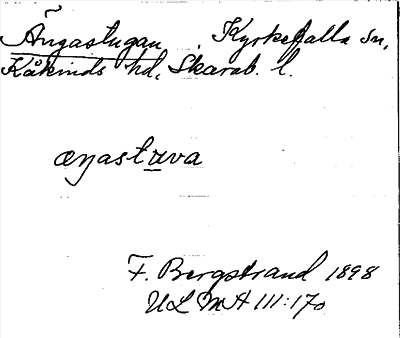 Ängastugan Kyrkefalla sn,
Kåkinds hd, Skarab. l.
æŋastu̲va
F. Bergstrand 1898
ULMA 111:170